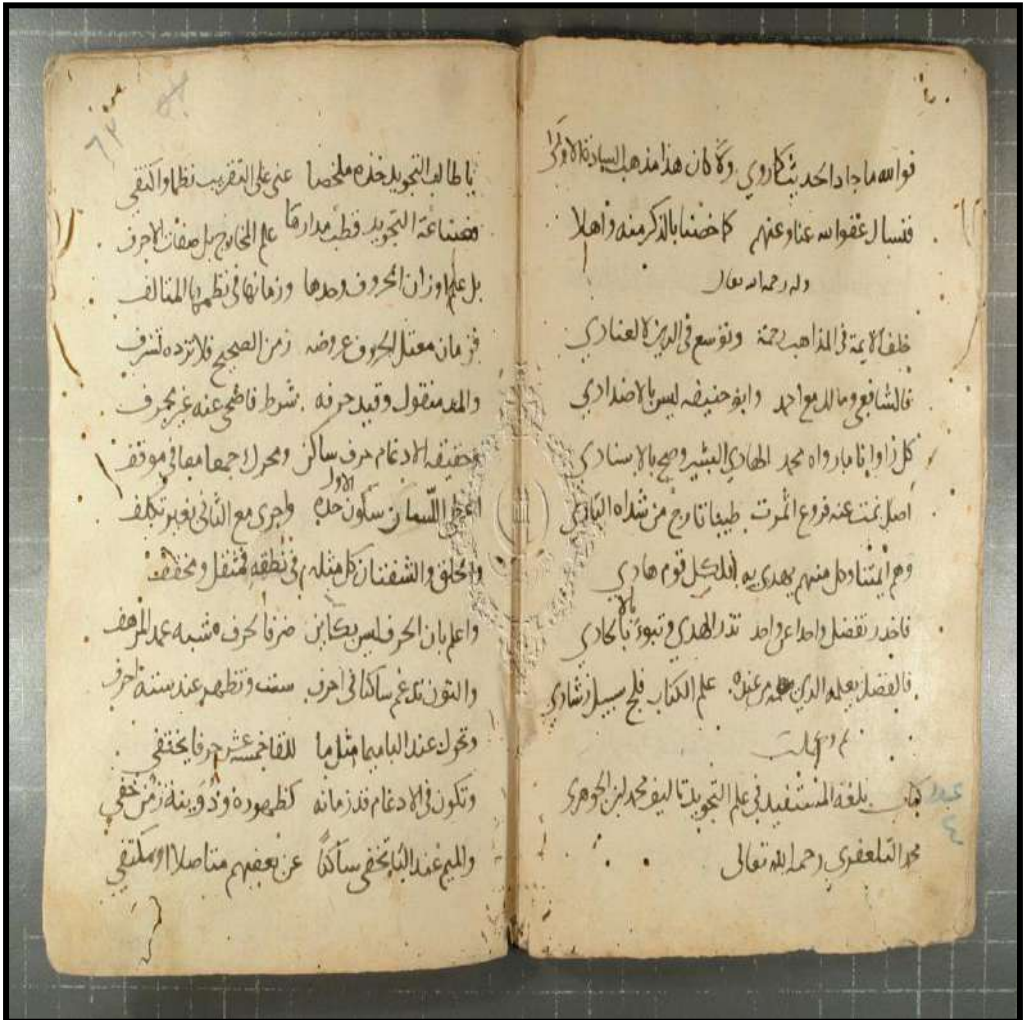 فوالله ما جاد الحديث كما روي ولا كان هذا مذهب السادة الاولا
فنسال عفو الله عنا وعنهم كما خصنا بالذكر منه واهلا
وله رحمه الله تعالى
خلف الايمة في المذاهب رحمة وتوسع في الدين لا لعنادي
فالشافعي ومالك مع احمد وابو حنيفه ليس بالاضدادي
كل زاوا بما رواه محمد الهادي البشير وصح بالاسنادي
اصل نمت عنه فروع اثمرت طيبا تارج من شداه النادي
وهم ايمتنا وكل منهم يهدى به افلكل قوم هادي
فاخدر تفضل واحدا عن واحد تدر الهدي وتبوء بالالحادي
فالفضل يعلمه الذي من عنده علم الكتاب فلج سبيل رشادي
كتاب بلغة المستفيد في علم التجويد تاليف محمد ابن الجوهري
محمد التلعفري رحمه الله تعالى
٦٢
يا طالب التجويد خذه ملخصا عني على التقريب نظما واكتفي
فصناعة التجويد قطب مدارها علم المخارج بل صفات الاحرف
بل علم اوزان الحروف وحدها وزمانها في نظمها المتالف
فزمان معتل الحروف عروضه زمن الصحيح فلا تزده تشرف
والمد منقول وقيد حرفه شرط فاضحى عنه غير محرف
وحقيقة الادغام حرف ساكن ومحرك جمعا معا في موقف
اللسان سكون حده الاول واجرى مع الثاني بغير تكلف
والحلق والشفتان كل مثله في نطقه فمثقل ومخفف
واعلم بان الحرف ليس بكاين ضرفا لحرف مشبه عمد المرهف
والنون تدغم ساكنا في احرف ست وتظهر عند ستة احرف
وتحول عند البا ميما مثل ما للقا خمسة عشر حرفا يختفي
وتكون في الادغام قدر زمانه كظهوره زمن خفي
والميم عند البا تخفى ساكنا عن بعضهم متاصلا او مكتفي